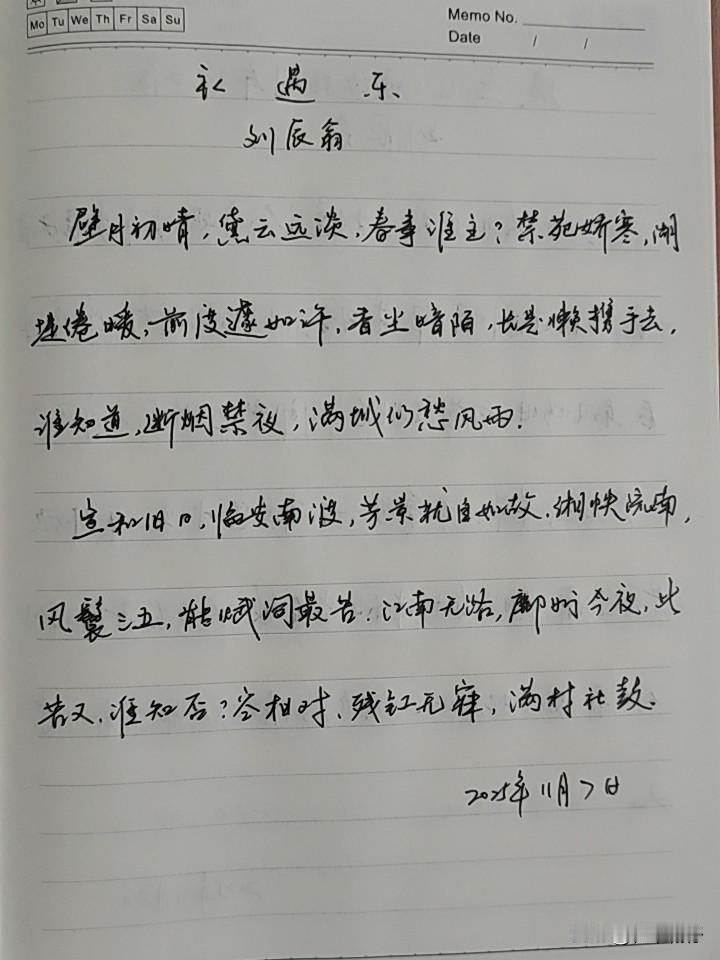 Mo Tu We Th Fr Sa Su
Memo No.
Date / /
永遇乐
刘辰翁
璧月初晴，黛云远淡，春事谁主？禁苑娇寒，湖
堤倦暖，前度遽如许，香尘暗陌，长是懒携手去，
谁知道，断烟禁夜，满城似愁风雨。
宣和旧日，临安南渡，芳景犹自如故，缃帙流离，
风鬟三五，能赋词最苦。江南无路，鄜州今夜，此
苦又，谁知否？空相对，残釭无寐，满村社鼓。
2025年11月7日